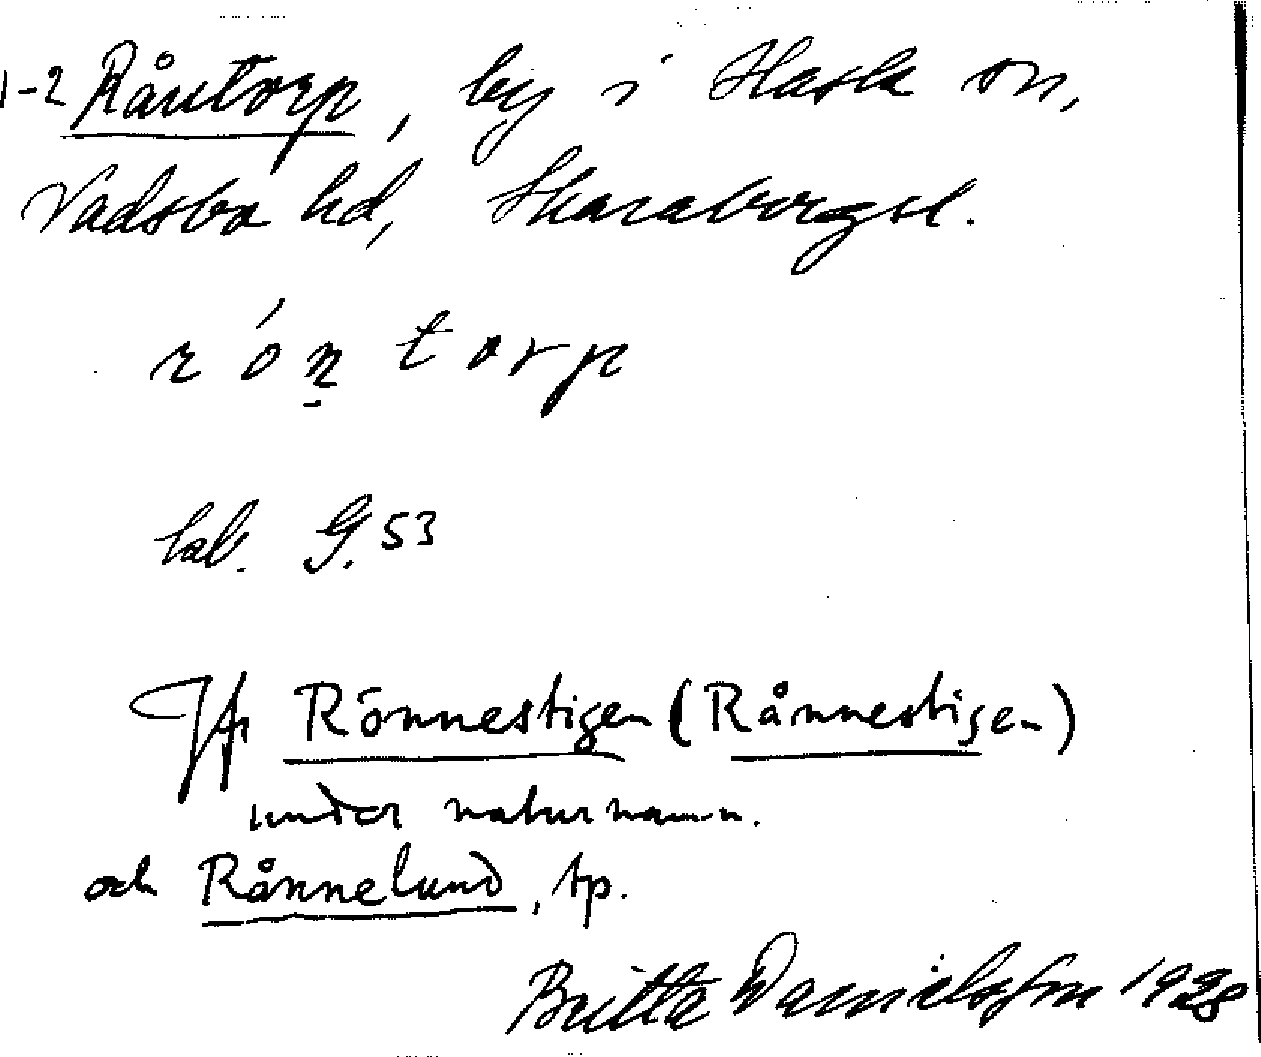 1-2 Råntorp, by i Hassle sn,
Vadsbo hd, Skaraborgsl.
r ó n̠ t o r p
kal. G. 53
Jfr Rönnestigen (Rånnestigen)
under naturnamn.
och Rånnelund, tp.
Britta Danielsson 1928